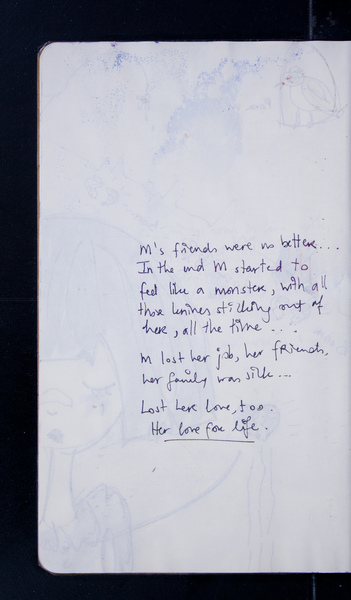 M's friends were no better...
In the end M started to
feel like a monster, with all
those knives sticking out of
her, all the time....
M lost her job, her friends,
her family was sick...
Lost her love, too.
Her love for life.